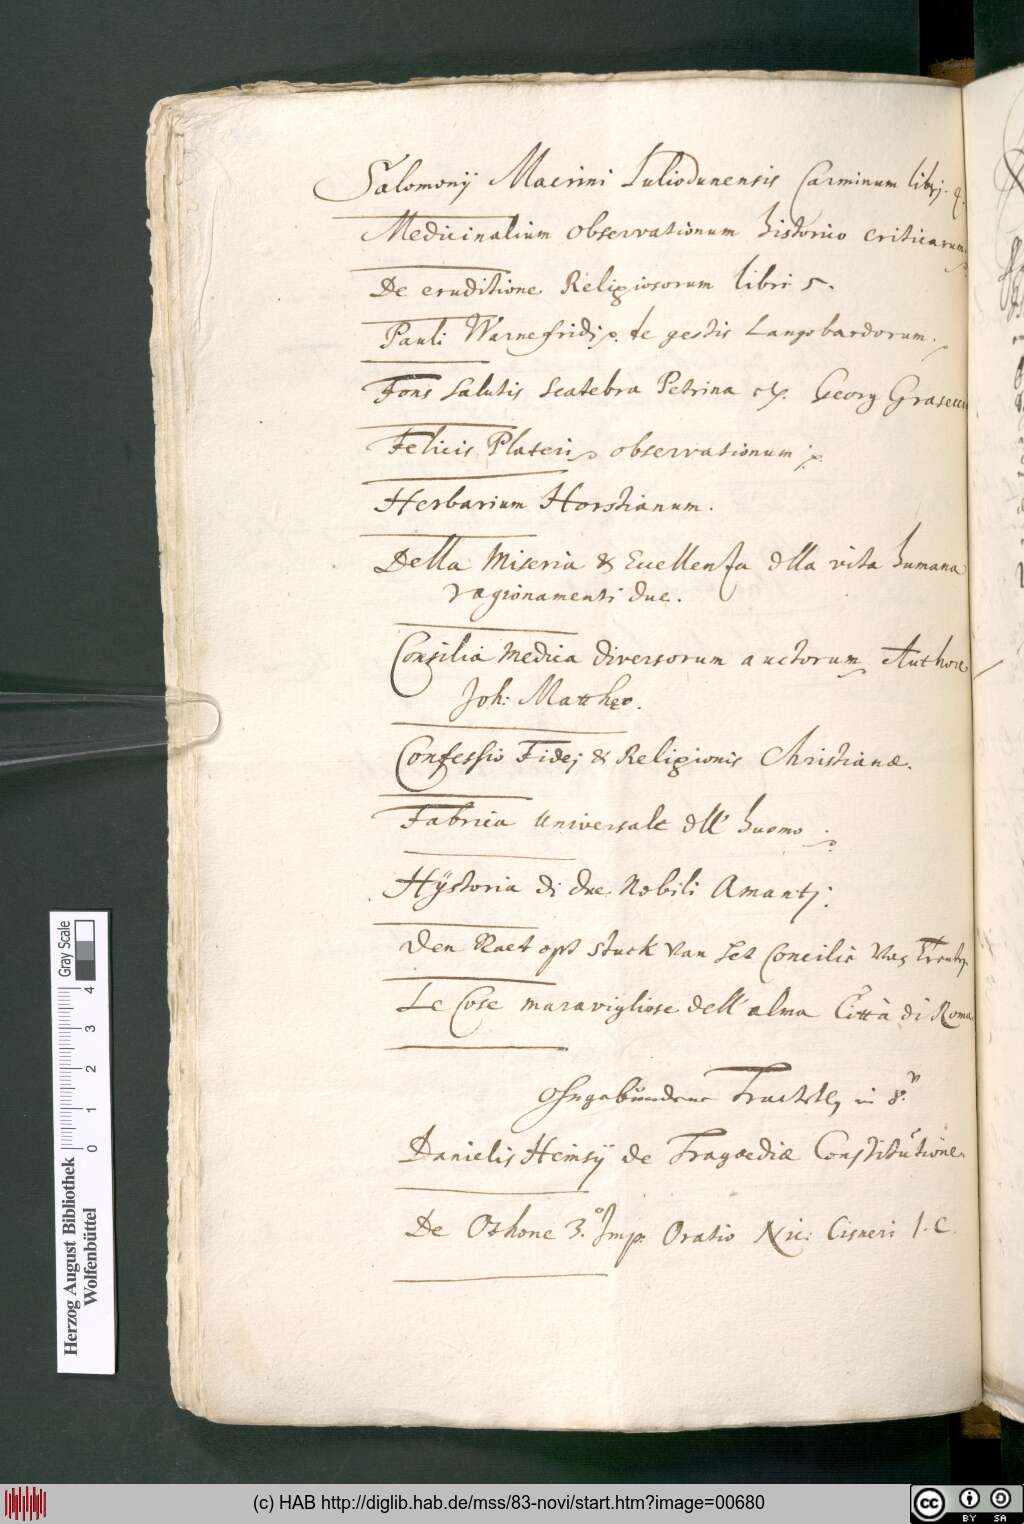 Salomonij Macrini Juliodunensis Carminum libri. 4.
Medicinalium observationum historico criticarum.
De eruditione Religiosorum libri 5.
Pauli Warnefridi p. de gestis Langobardorum.
Fons Salutis Scatebra Petrina Georg
Felicis Plateri observationum
Herbarium Horstianum.
Della Miseria & Eccellenza dlla vita humana
ragionamenti due.
Consilia Medica diversorum auctorum Authore
Joh: Mattheo.
Confessio Fidej & Religionis Christianæ.
Fabrica universale dll' huomo
Hÿstoria di due Nobili Amantj.
Den Raet opt stuck van Het Concilie van
Le Cose maravigliose dell' alma Città di Roma
Ongebundene in 8.
Danielis Heinsij de Tragœdiæ Constitutione.
De Othone 3.º Imp. Oratio Nic: Cisneri I. C.
Herzog August Bibliothek
Wolfenbüttel
0 1 2 3 4
Gray Scale
(c) HAB http://diglib.hab.de/mss/83-novi/start.htm?image=00680
cc BY SA